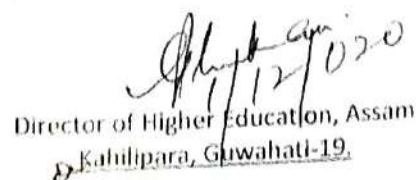 1/12/020
Director of Higher Education, Assam
Kahilipara, Guwahati-19.